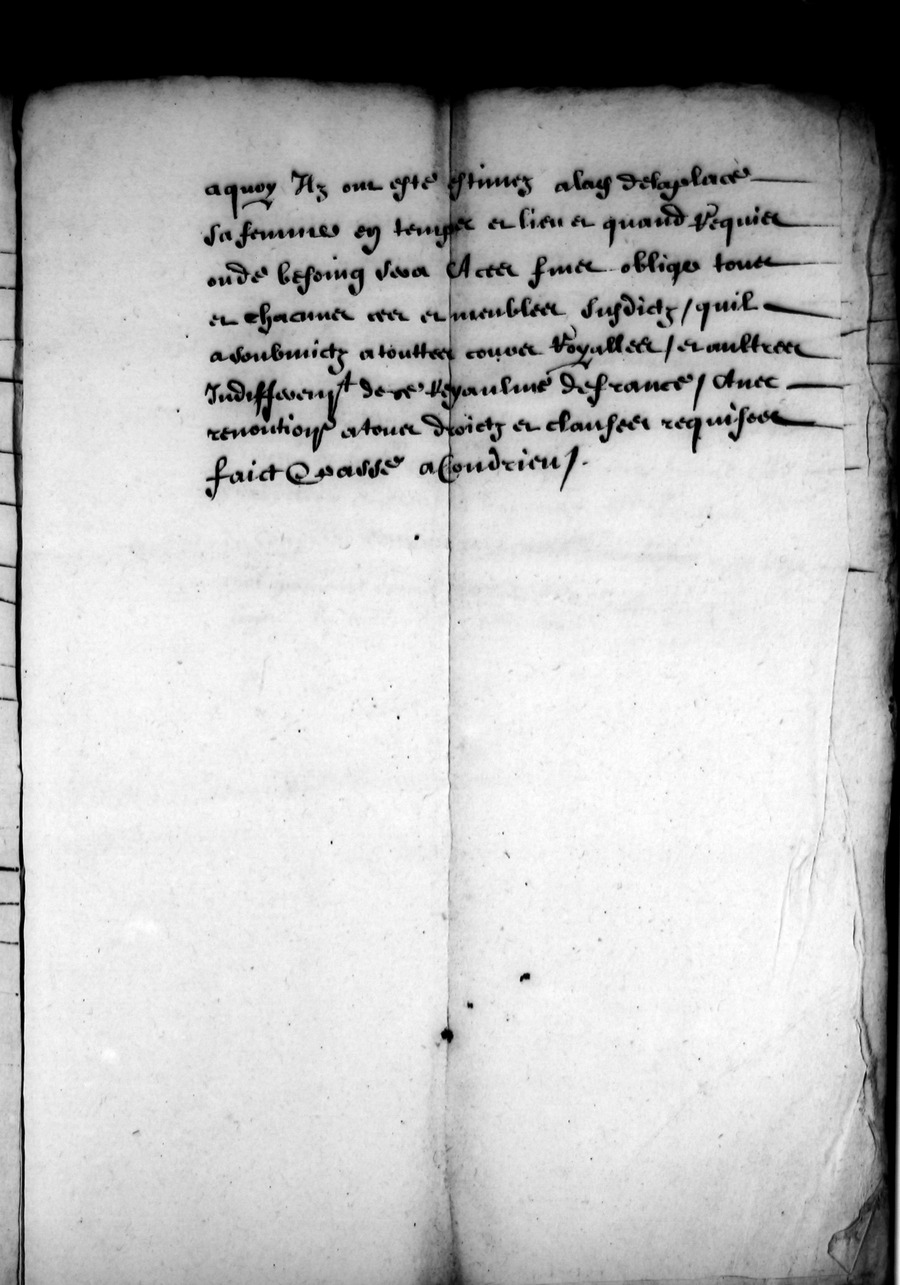 aquoy Ilz ont esté estimez a lad delaplace
sa femme en temps et lieu et quand Requier
ou de besoing sera A ces fines oblige tous
et chacunes ces et meubles susdictz / quil
a soubmictz a touttes cours Royalles / et aultres
Indifferent de ce Royaulme de france / Avec
renontions a tous droictz et clauses requises
faict & passé a Condrieu /.